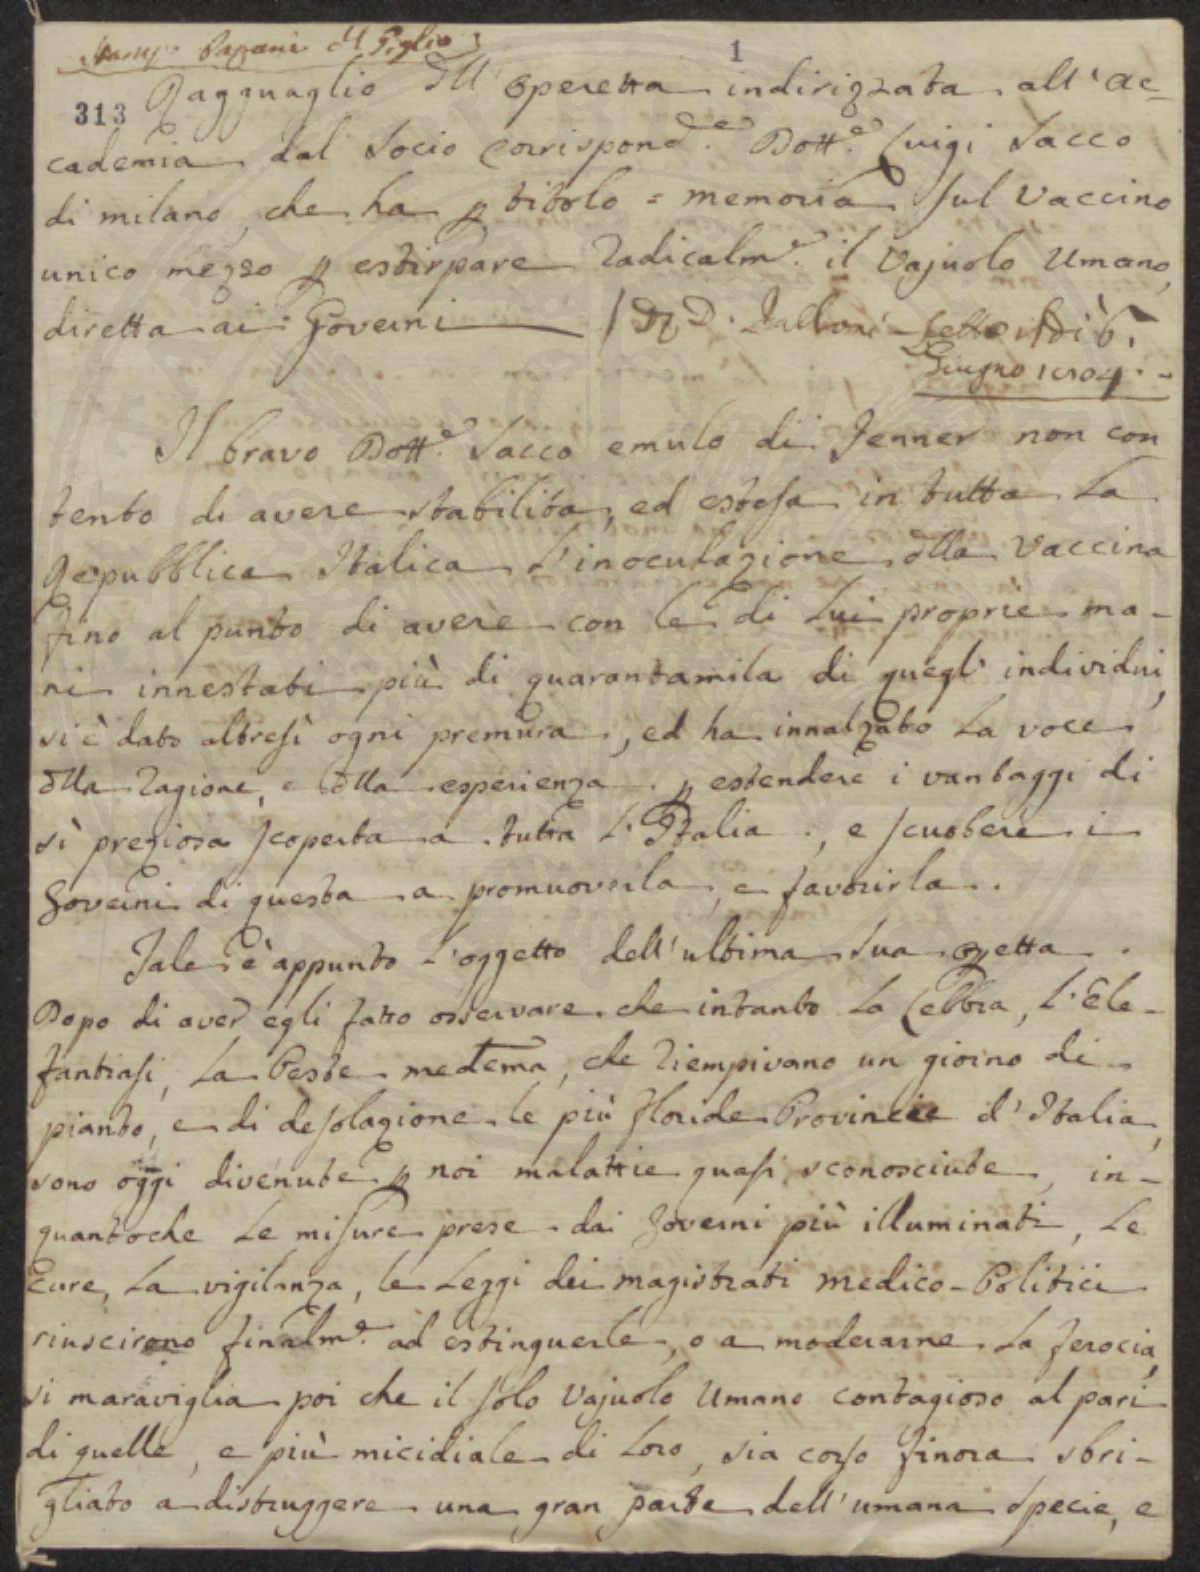 1
313 Ragguaglio dll' operetta indirizzata all' Ac-
cademia dal Socio Corrispond.e Dott.e Luigi Sacco
di milano, che ha p titolo = memoria sul Vaccino
unico mezzo p estirpare radicalm.e il Vajuolo Umano,
diretta ai Governi
Giugno 1804. -
Il bravo Dott.e Sacco emulo di Jenner non con
tento di avere stabilita, ed estesa in tutta La
Repubblica Italica L'inoculazione dlla Vaccina
fino al punto di avere con le di Lui proprie ma-
ni innestati più di quarantamila di quegl' individui,
si è dato altresì ogni premura, ed ha innalzato La voce
dlla ragione, e dlla esperienza p estendere i vantaggi di
sì preziosa scoperta a tutta L'Italia, e scuotere i
Governi di questa a promuoverla, e favorirla.
Tale è appunto L'oggetto dell'ultima sua
Dopo di aver egli fatto osservare che intanto La Lebbra, L'Ele-
fantiasi, La Peste medema, che riempivano un giorno di
pianto, e di desolazione le più floride Provincie d'Italia,
sono oggi divenute p noi malattie quasi sconosciute, in-
quantoche Le misure prese dai Governi più illuminati, Le
Cure, La vigilanza, le Leggi dei magistrati medico-Politici
riuscirono finalm.e ad estinguerle, o a moderarne La ferocia,
si maraviglia poi che il solo Vajuolo Umano contagioso al pari
di quelle, e più micidiale di Loro, sia corso finora sbri-
gliato a distruggere una gran parte dell'umana Specie, e